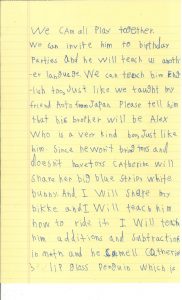 We can all Play together
We can invite him to birthday
Parties and he will teach us anoth-
er language. We can teach him Eng-
lish too, Just like we taught my
friend from Japan. Please tell him
that his brother will be Alex
Who is a very kind boy, Just like
him Since he won't bring toys and
doesn't have toys Catherine will
share her big blue strip white
bunny And I Will share my
bike and I Will teach him
how to ride it. I Will teach
him additions and subtraction
in math and he smell Catherine
s lip gloss Penguin which is